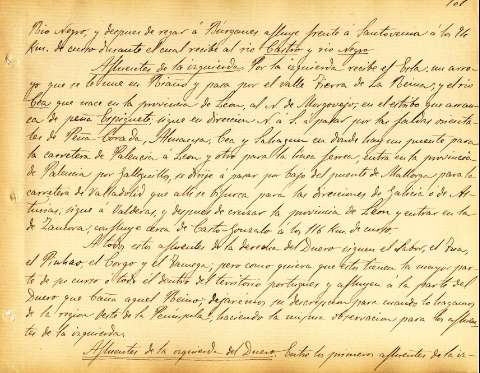 Rio Negro, y despues de regar á Burganes afluye frente á Santovenia á los 96
Km. de curso durante el cual recibe al rio Castro y rio Negro.
Afluentes de la izquierda. Por la izquierda recibe el Esla; un arro-
yo que se le une en Riaño y pasa por el valle Tierra de la Reina; y el rio
Cea que nace en la provincia de Leon, al N. de Morgovejo, en el estribo que arran-
ca de peña Espigüete, sigue en direccion N. á S. a pasar por las faldas orienta-
les de Peña Corada, Almanza, Cea y Sahagun en donde hay un puente para
la carretera de Palencia á Leon y otro para la linea ferrea, entra en la provincia
de Palencia por Galleguillos, se dirije á pasar por bajo del puente de Mallorga para la
carretera de Valladolid que alli se bifurca para las direcciones de Galicia ó de As-
turias, sigue á Valderas, y despues de cruzar la provincia de Leon y entrar en la
de Zamora, confluye cerca de Castro-Gonzalo a los 116 Km. de curso.
A todos estos afluentes de la derecha del Duero siguen el Sabor, el Tua,
el Pinhao, el Corgo y el Tamega; pero como quiera que estos tienen la mayor par-
te de su curso ó todo él dentro del territorio portugues y afluyen á la parte del
Duero que baña aquel Reino; dejaremos su descripcion para cuando lo hagamos
de la region Oeste de la Peninsula, haciendo la misma observacion para los afluen-
tes de la izquierda.
Afluentes de la izquierda del Duero. Entre los primeros afluentes de la iz-